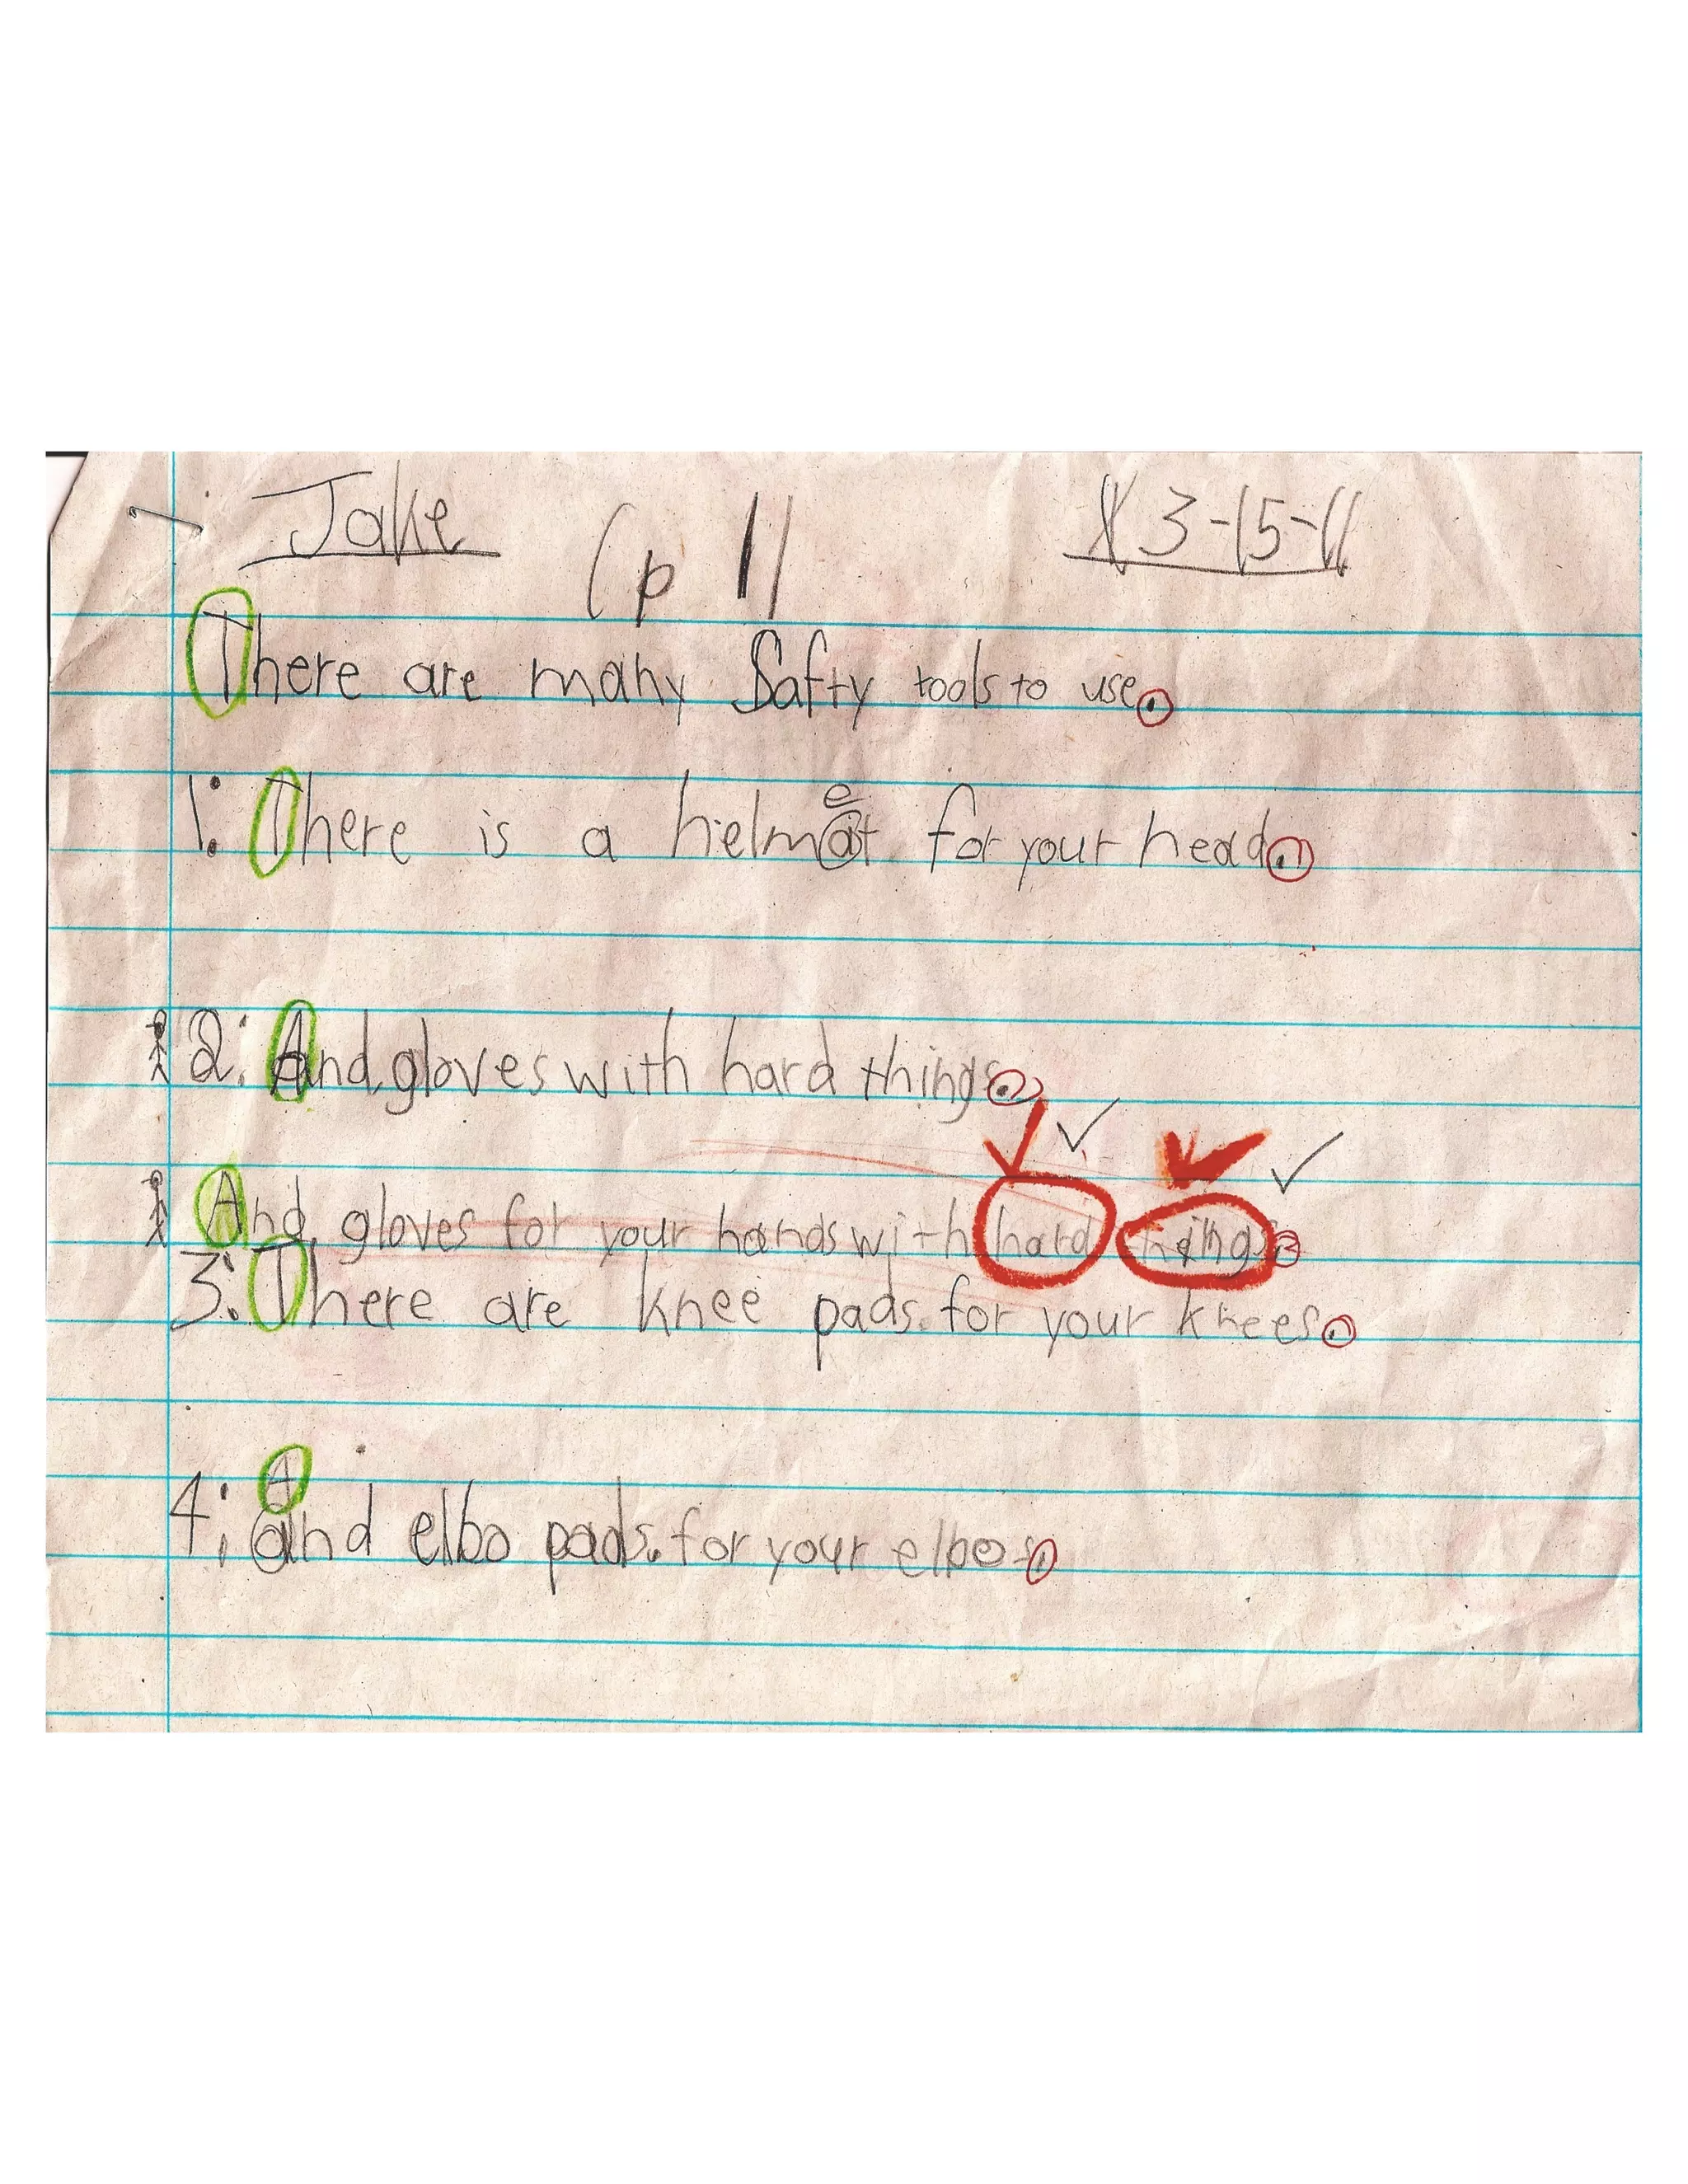 Jake (p 1) 3-15-11
There are many Safty tools to use.
1. There is a helmat for your head.
e
2. And gloves with hard things.
And gloves for your hands with hard things.
3. There are knee pads for your knees.
A
4. and elbo pads. for your elbos.